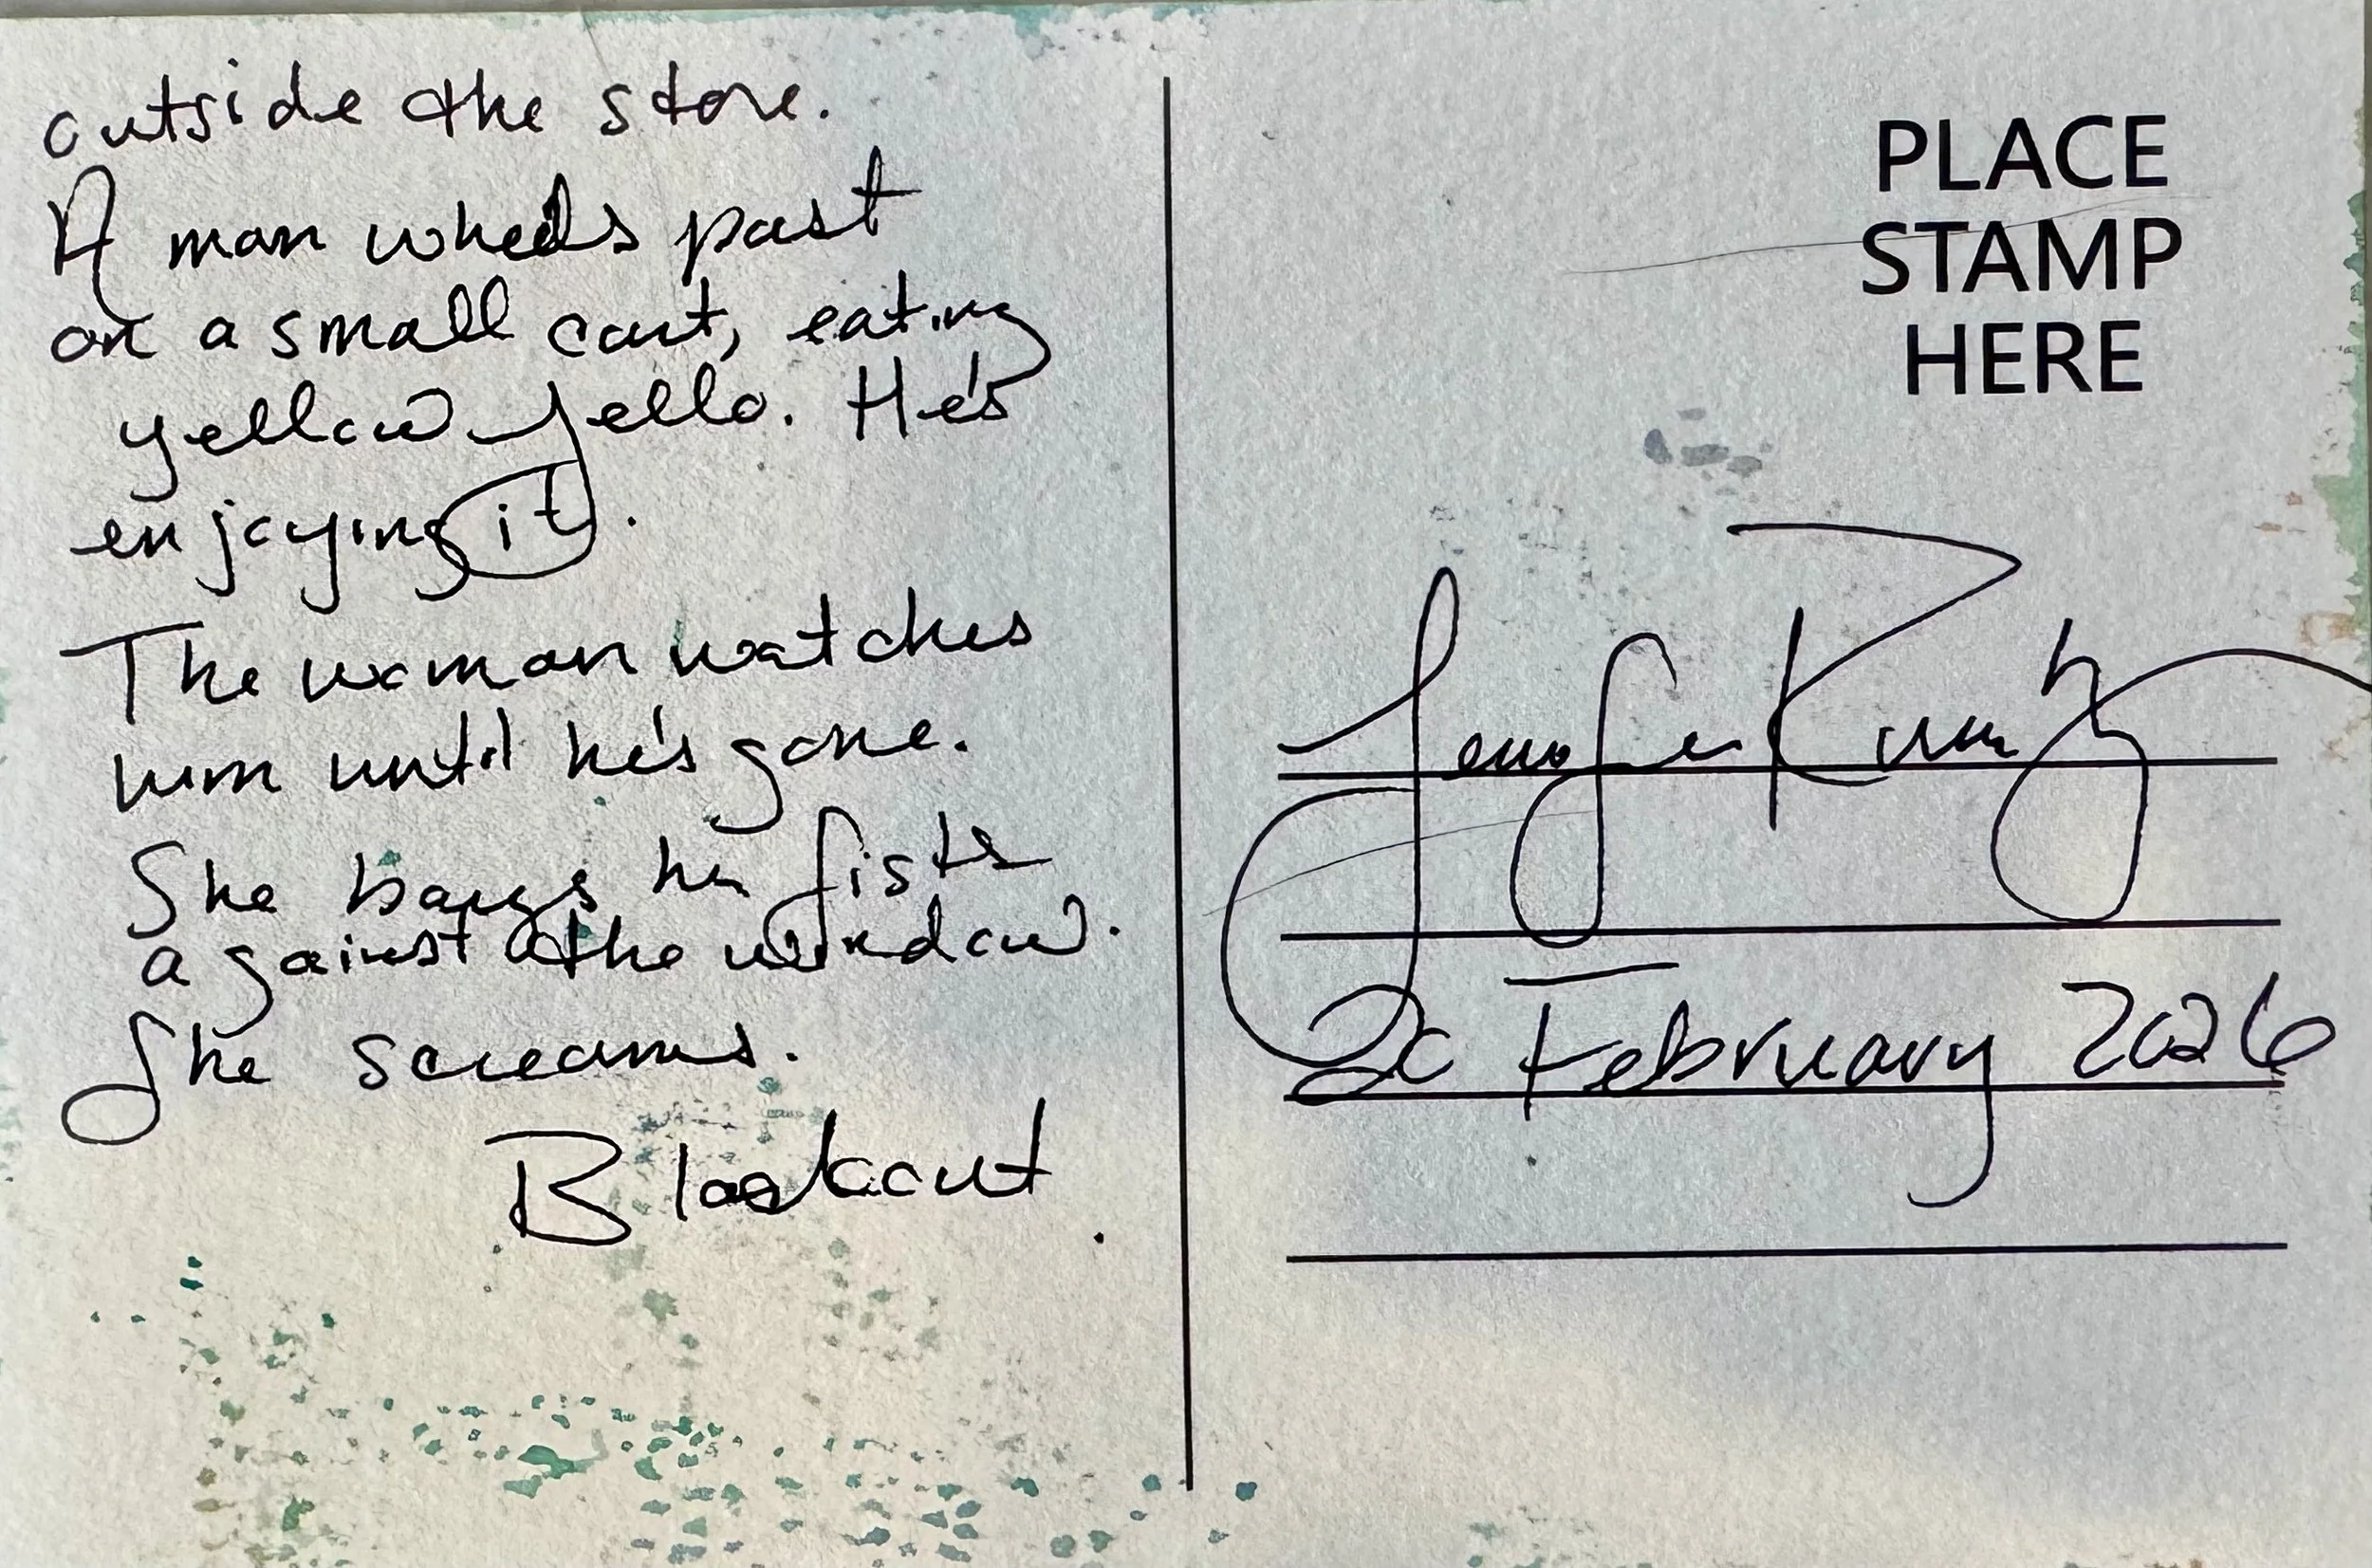 outside the store.
A man wheels past
on a small cart, eating
yellow jello. He's
enjoying it.
The woman watches
him until he's gone.
She bangs her fists
against the window.
She screams.
Blackout.
PLACE
STAMP
HERE
Jennifer
20 February 2026